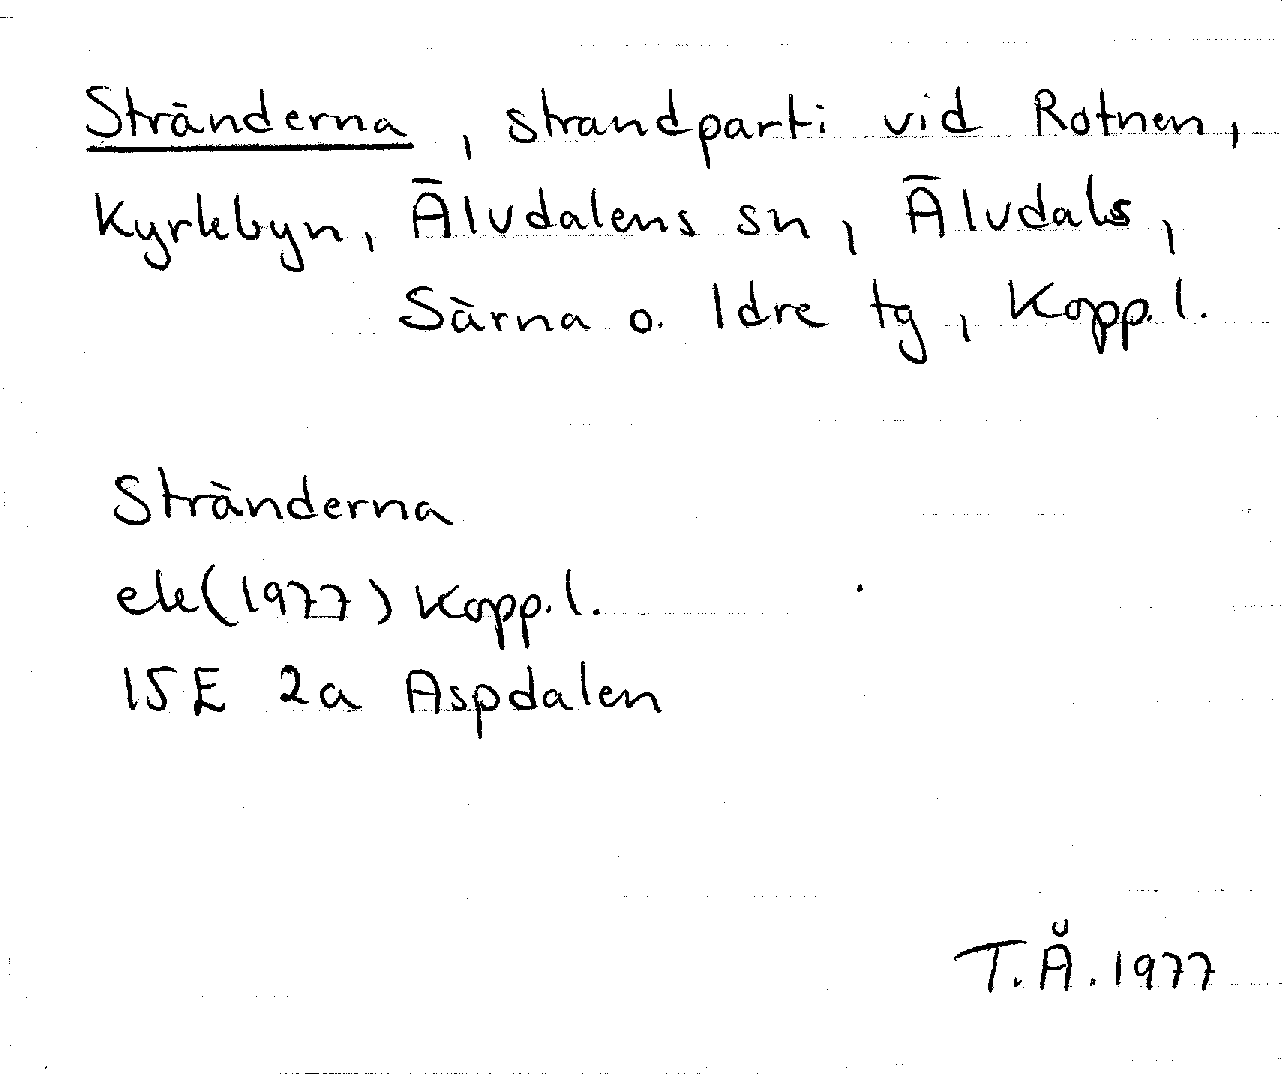 Stränderna, strandparti vid Rotnen,
Kyrkbyn, Älvdalens sn, Älvdals,
Särna o. Idre tg, Kopp.l.
Stränderna
ek(1977) Kopp.l.
15E 2a Aspdalen
T.Å.1977